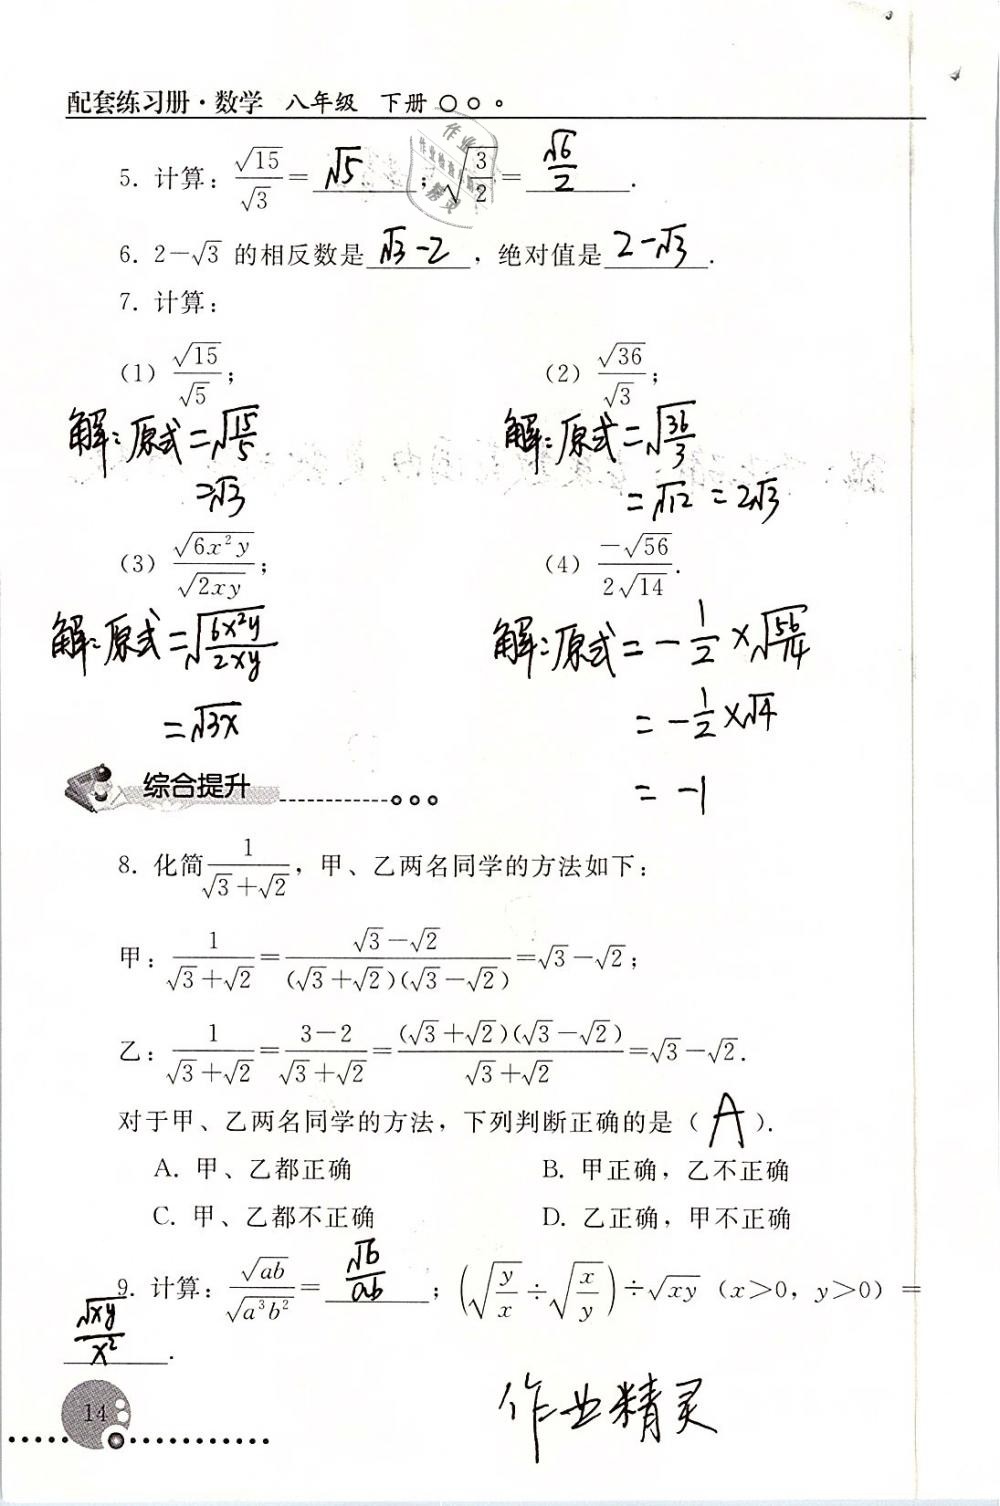 配套练习册·数学 八年级 下册
5. 计算：√15/√3=√5；√(3/2)=√6/2.
6. 2-√3 的相反数是√3-2，绝对值是2-√3.
7. 计算：
(1) √15/√5； (2) √36/√3；
解：原式=√(15/5) 解：原式=√(36/3)
=√3 =√12=2√3
(3) √(6x²y)/√(2xy)； (4) -√56/(2√14).
解：原式=√(6x²y/2xy) 解：原式=-1/2×√(56/14)
=√3x =-1/2×√4
综合提升 =-1
8. 化简1/(√3+√2)，甲、乙两名同学的方法如下：
甲：1/(√3+√2)=(√3-√2)/((√3+√2)(√3-√2))=√3-√2；
乙：1/(√3+√2)=(3-2)/(√3+√2)=((√3+√2)(√3-√2))/(√3+√2)=√3-√2.
对于甲、乙两名同学的方法，下列判断正确的是（A）.
A. 甲、乙都正确 B. 甲正确，乙不正确
C. 甲、乙都不正确 D. 乙正确，甲不正确
9. 计算：√(ab)/√(a³b²)=√b/ab；(√(y/x)÷√(x/y))÷√(xy)（x>0，y>0）=
√(xy)/x².
作业精灵
14